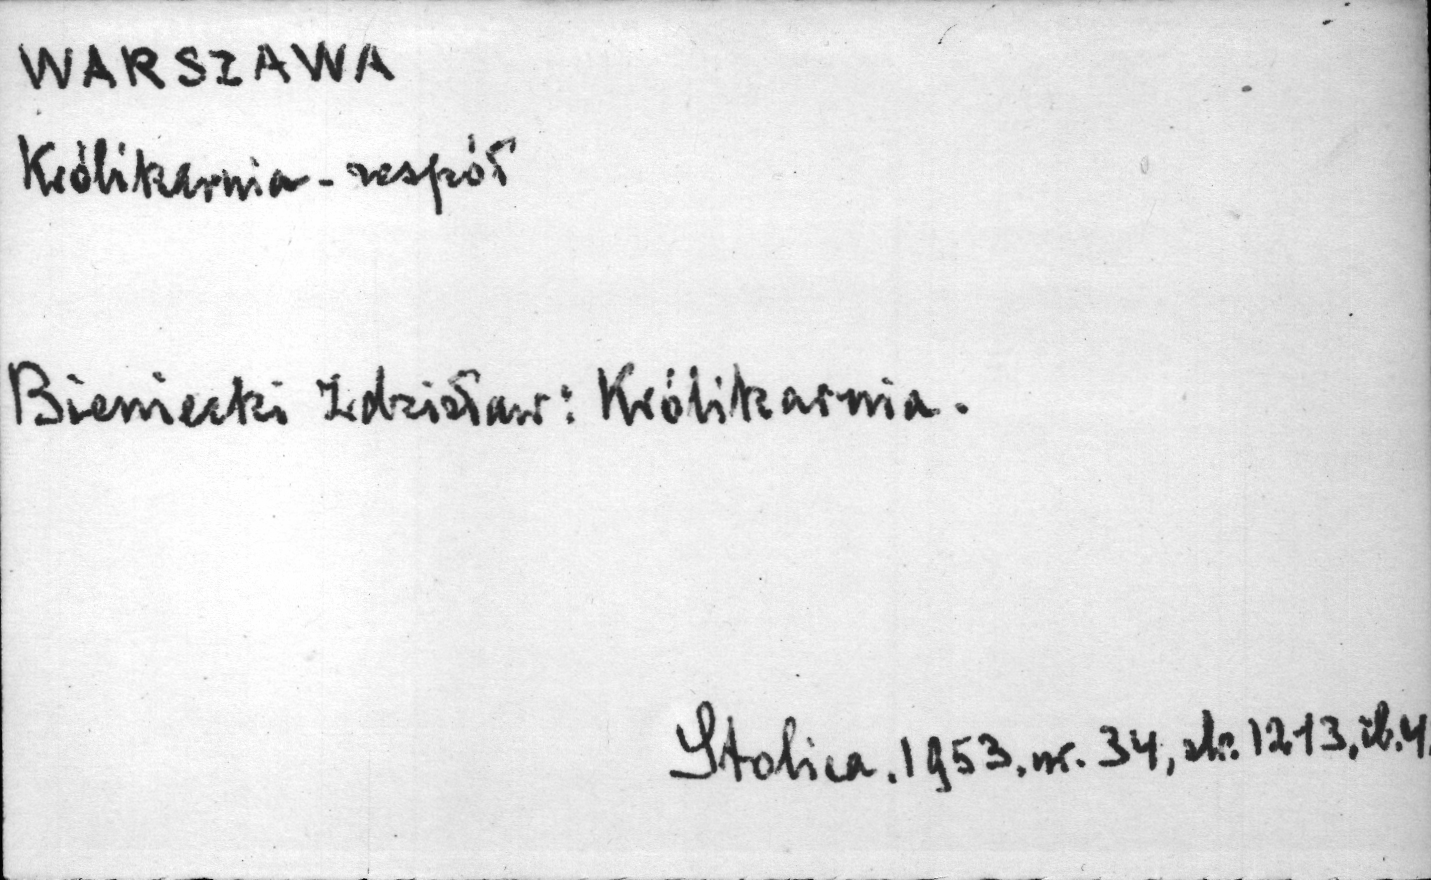 WARSZAWA
Królikarnia - zespół
Bieniecki Zdzisław: Królikarnia.
Stolica. 1953. nr. 34, str. 12-13, il. 4.